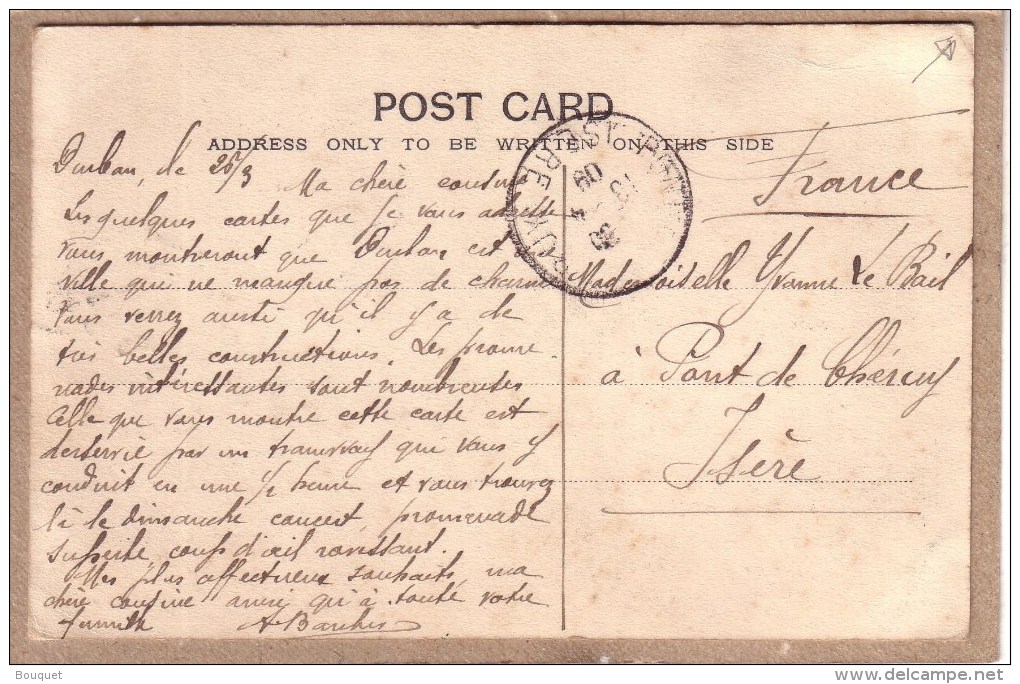 POST CARD
ADDRESS ONLY TO BE WRITTEN ON THIS SIDE
Durban, le 25/3
Ma chère cousine
Les quelques cartes que je vous adresse
vous montreront que Durban est
ville qui ne manque pas de charme
Vous verrez aussi qu'il y a de
très belles constructions. Les prome
nades intéressantes sont nombreuses
Celle que vous montre cette carte est
desservie par un tramway qui vous y
conduit en une 1/2 heure et vous trouvez
là le dimanche concert, promenade
superbe coup d'œil ravissant.
Mes plus affectueux souhaits, ma
chère cousine ainsi qu'à toute votre
famille
France
Mademoiselle Yvonne Le Bail
à Pont de Chéruy
Isère
ISERE
09
Bouquet
delcampe.net